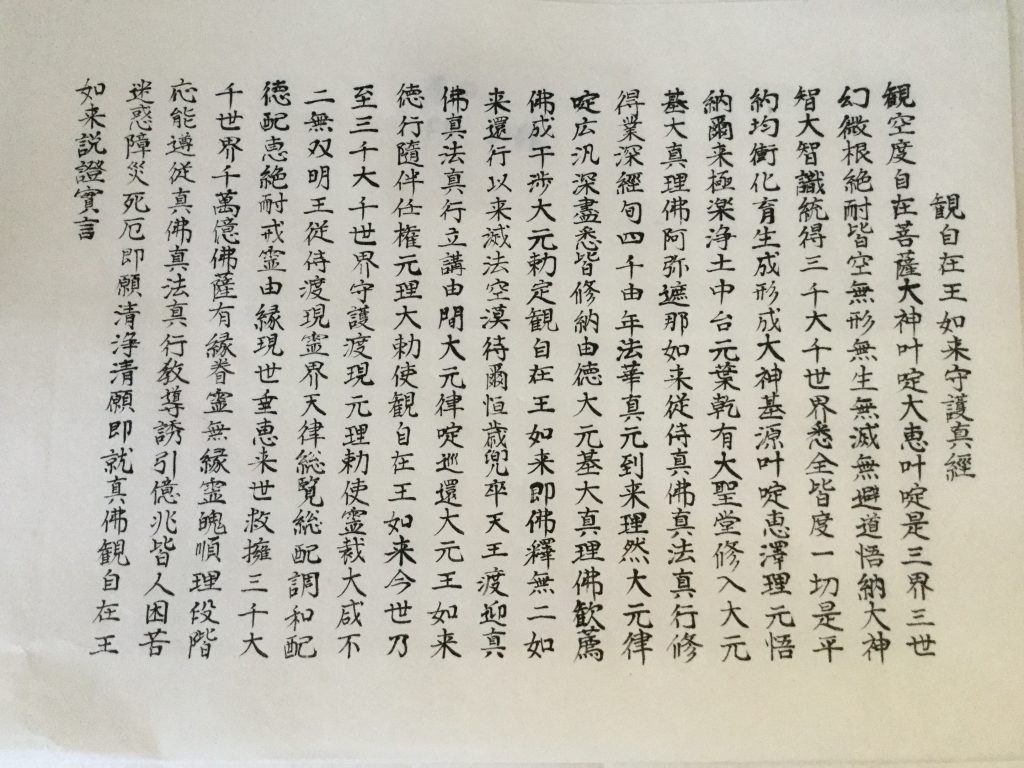 観自在王如来守護真經
観空度自在菩薩大神叶啶大恵叶啶是三界三世
幻微根絶耐皆空無形無生無滅無避道悟納大神
智大智識統得三千大千世界悉全皆度一切是平
約均衡化育生成形成大神基源叶啶恵澤理元悟
納爾来極楽浄土中台元葉乾有大聖堂修入大元
基大真理佛阿弥遮那如来従侍真佛真法真行修
得業深經旬四千由年法華真元到来理然大元律
啶広汎深盡悉皆修納由徳大元基大真理佛歓薦
佛成干渉大元勅定観自在王如来即佛釋無二如
来還行以来滅法空漠待爾恒歳兜率天王渡迎真
佛真法真行立講由閒大元律啶巡還大元王如来
徳行隨伴任権元理大勅使観自在王如来今世乃
至三千大千世界守護渡現元理勅使霊裁大咸不
二無双明王従侍渡現霊界天律総覧総配調和配
徳配恵絶耐戒霊由縁現世垂恵来世救擁三千大
千世界千萬億佛薩有縁眷霊無縁霊醜順理段階
応能遵従真佛真法真行教導誘引億兆皆人困苦
迷惑障災死厄即願清浄清願即就真佛観自在王
如来説證實言